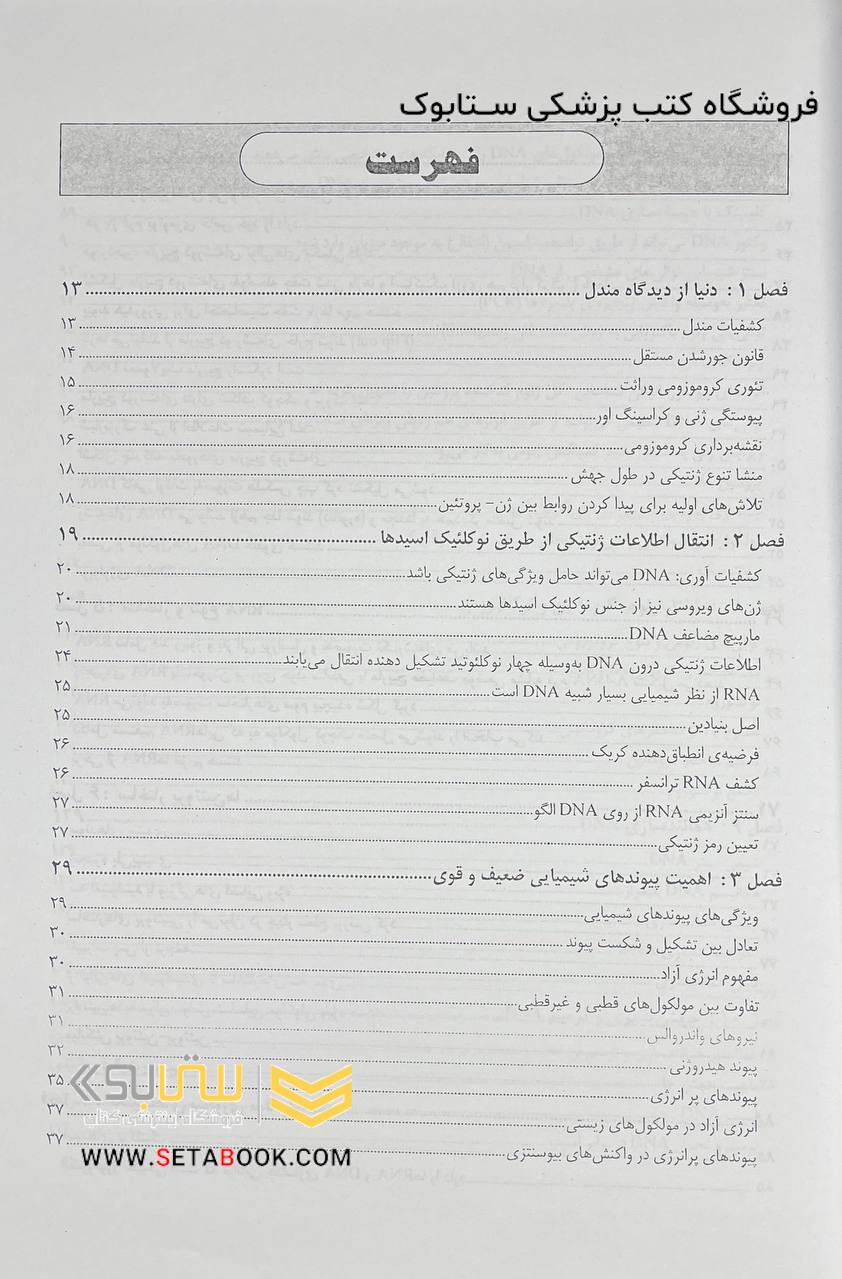 فروشگاه کتب پزشکی ستابوک
فهرست
فصل ۱: دنیا از دیدگاه مندل ۱۳
کشفیات مندل ۱۳
قانون جورشدن مستقل ۱۴
تئوری کروموزومی وراثت ۱۵
پیوستگی ژنی و کراسینگ اور ۱۶
نقشه‌برداری کروموزومی ۱۶
منشا تنوع ژنتیکی در طول جهش ۱۸
تلاش‌های اولیه برای پیدا کردن روابط بین ژن- پروتئین ۱۸
فصل ۲: انتقال اطلاعات ژنتیکی از طریق نوکلئیک اسیدها ۱۹
کشفیات آوری: DNA می‌تواند حامل ویژگی‌های ژنتیکی باشد ۲۰
ژن‌های ویروسی نیز از جنس نوکلئیک اسیدها هستند ۲۰
مارپیچ مضاعف DNA ۲۱
اطلاعات ژنتیکی درون DNA به‌وسیله چهار نوکلئوتید تشکیل دهنده انتقال می‌یابند ۲۴
RNA از نظر شیمیایی بسیار شبیه DNA است ۲۵
اصل بنیادین ۲۵
فرضیه‌ی انطباق‌دهنده کریک ۲۶
کشف RNA ترانسفر ۲۶
سنتز آنزیمی RNA از روی DNA الگو ۲۷
تعیین رمز ژنتیکی ۲۷
فصل ۳: اهمیت پیوندهای شیمیایی ضعیف و قوی ۲۹
ویژگی‌های پیوندهای شیمیایی ۲۹
تعادل بین تشکیل و شکست پیوند ۳۰
مفهوم انرژی آزاد ۳۰
تفاوت بین مولکول‌های قطبی و غیرقطبی ۳۱
نیروهای واندروالس ۳۱
پیوند هیدروژنی ۳۲
پیوندهای پر انرژی ۳۵
انرژی آزاد در مولکول‌های زیستی ۳۷
پیوندهای پرانرژی در واکنش‌های بیوسنتزی ۳۷
ستابوک
فروشگاه اینترنتی کتاب
WWW.SETABOOK.COM